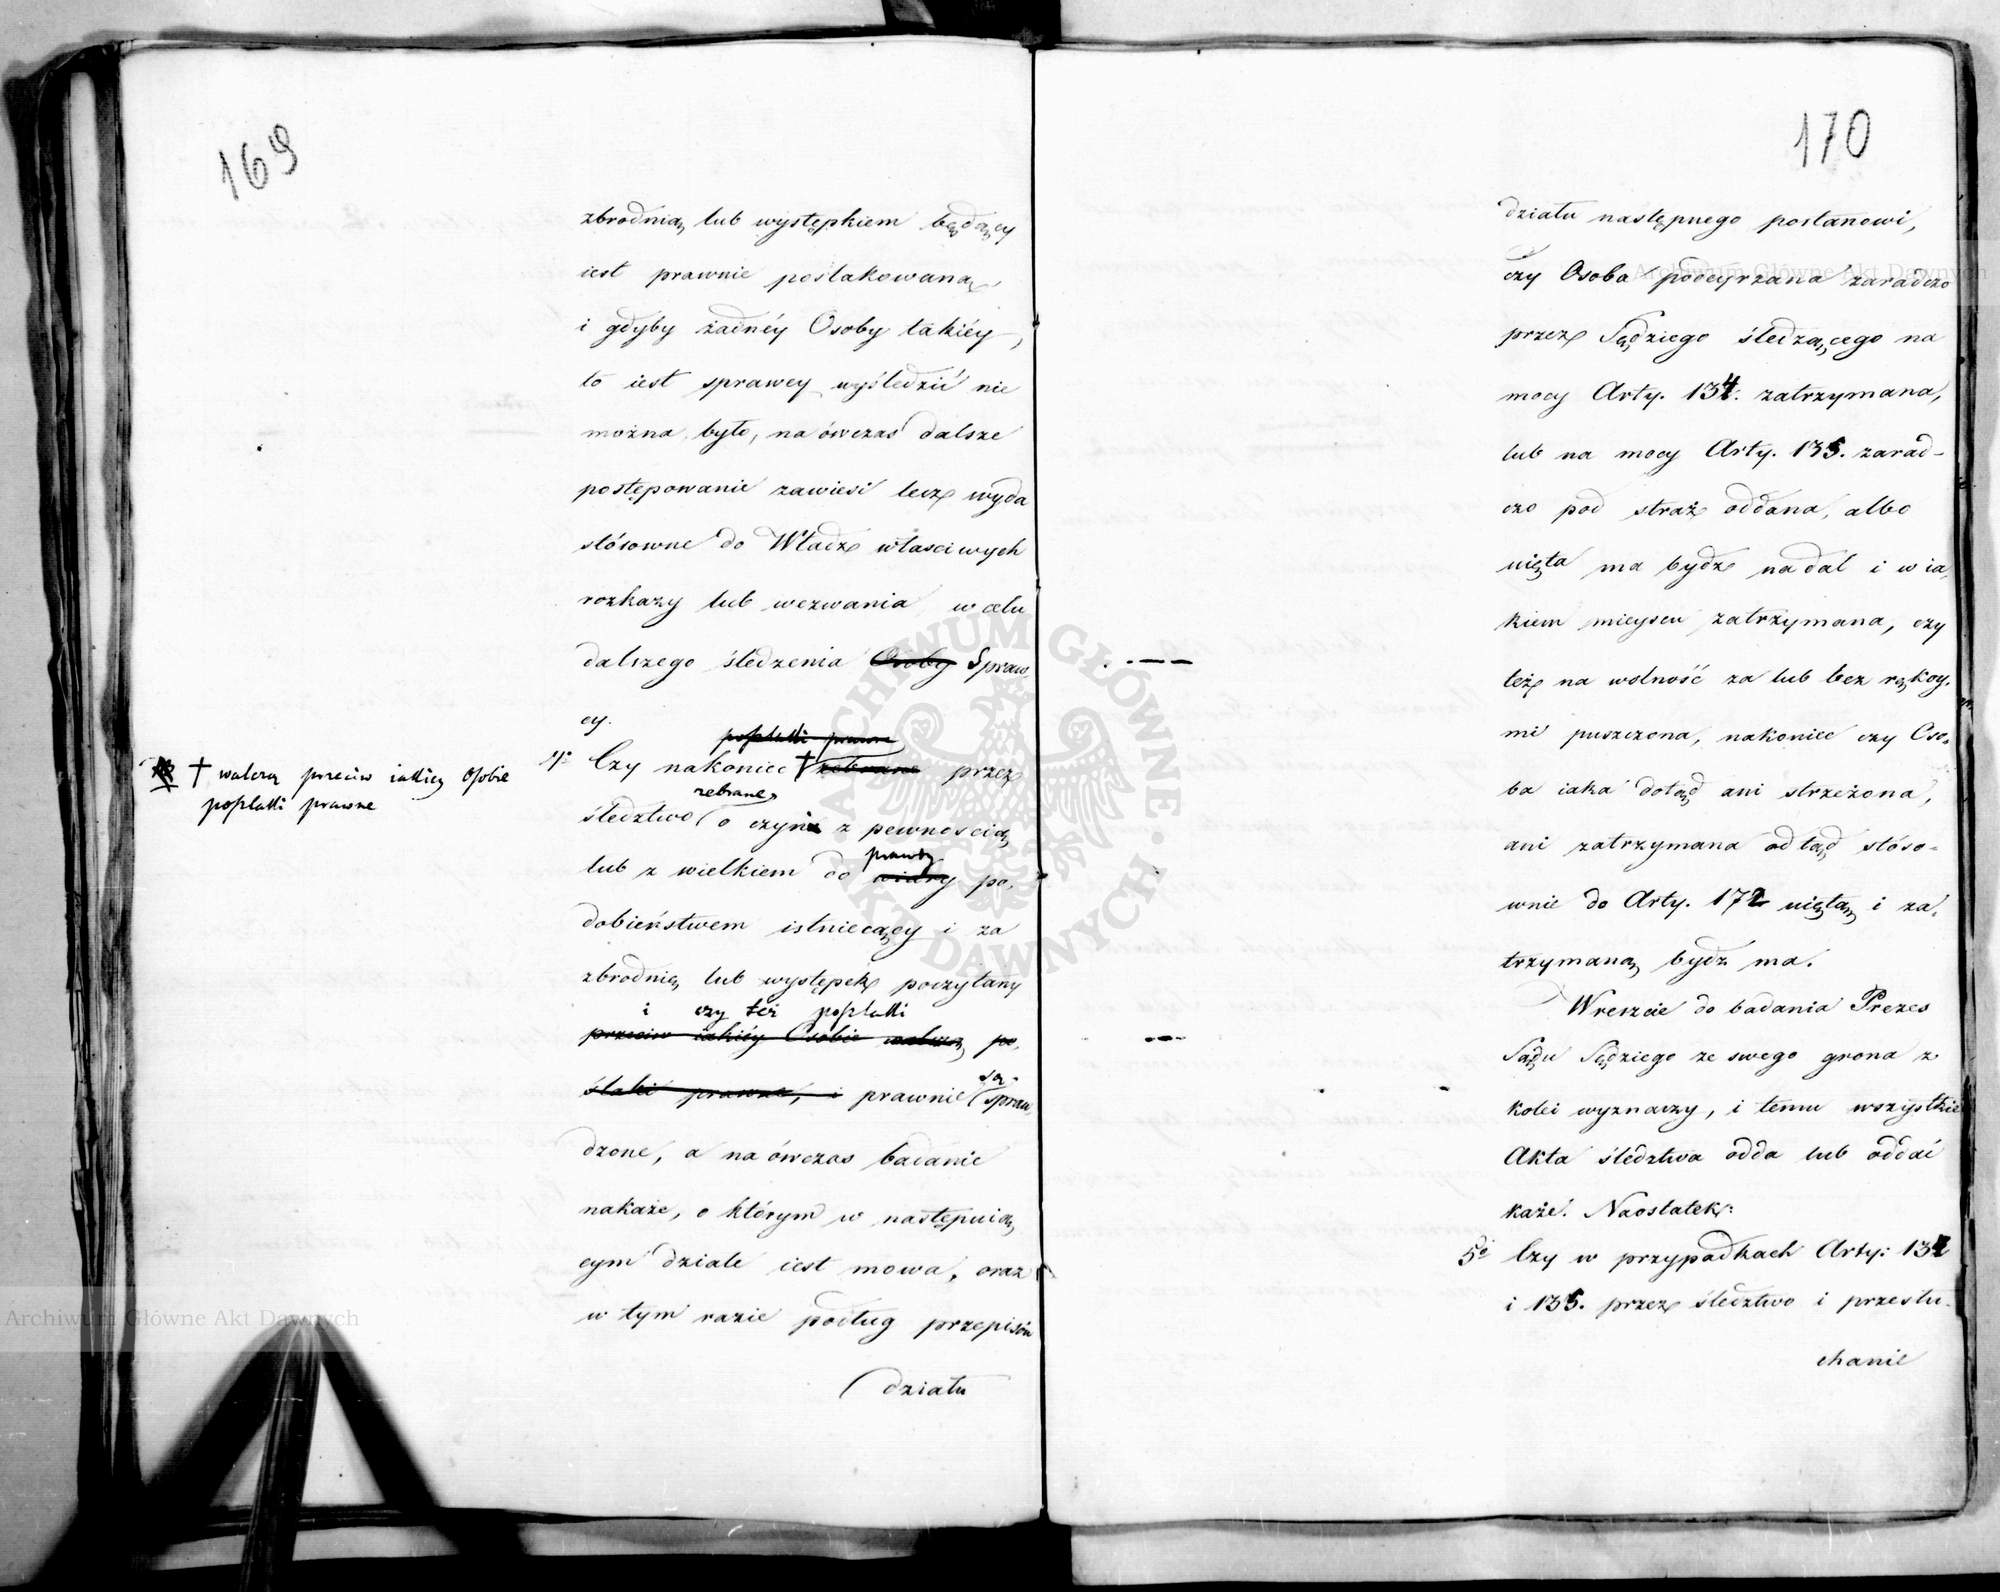 169
zbrodnią lub występkiem będący
iest prawnie poszlakowaną,
i gdyby żadnéy Osoby takiéy,
to iest sprawcy wyśledzić nie
można było, na ówczas dalsze
postępowanie zawiesi lecz wyda
stósowne do Władz własciwych
rozkazy lub wezwania w celu
dalszego śledzenia Osoby Spraw
cy.
poszlaki prawne
4o Czy nakoniec † zebrane przez
zebrane
śledztwo o czynie z pewnością
prawdy
lub z wielkiem do wiary po,
dobieństwem istniecący i za
zbrodnię lub występek poczytany
i czy też poszlaki
przeciw iakiéy Osobie walczą po,
są
ślaki prawne, i prawnie spraw
dzone, a na ówczas badanie
nakaże, o którym w następuią,
cym dziale iest mowa, oraz
w tym razie podług przepisów
działu
† walczą przeciw iakiéy Osobie
poszlaki prawne
170
działu następnego postanowi,
czy Osoba podeyrzana zaradczo
przez Sędziego śledzącego na
mocy Arty. 134. zatrzymana,
lub na mocy Arty. 135. zarad-
czo pod straż oddana, albo
uięta ma bydź nadal i w ia,
kiem mieyscu zatrzymana, czy
też na wolność za lub bez rękoy,
mi puszczona, nakoniec czy Oso,
ba iaka dotąd ani strzeżona,
ani zatrzymana odtąd stóso-
wnie do Arty. 172 uiętą i za,
trzymaną bydź ma.
Wreszcie do badania Prezes
Sądu Sędziego ze swego grona z
kolei wyznaczy, i temu wszystkie
Akta śledztwa odda lub oddać
każe. Naostatek:
5o Czy w przypadkach Arty: 134
i 135. przez śledztwo i przesłu-
chanie
Archiwum Główne Akt Dawnych
Archiwum Główne Akt Dawnych
ARCHIWUM GŁÓWNE AKT DAWNYCH